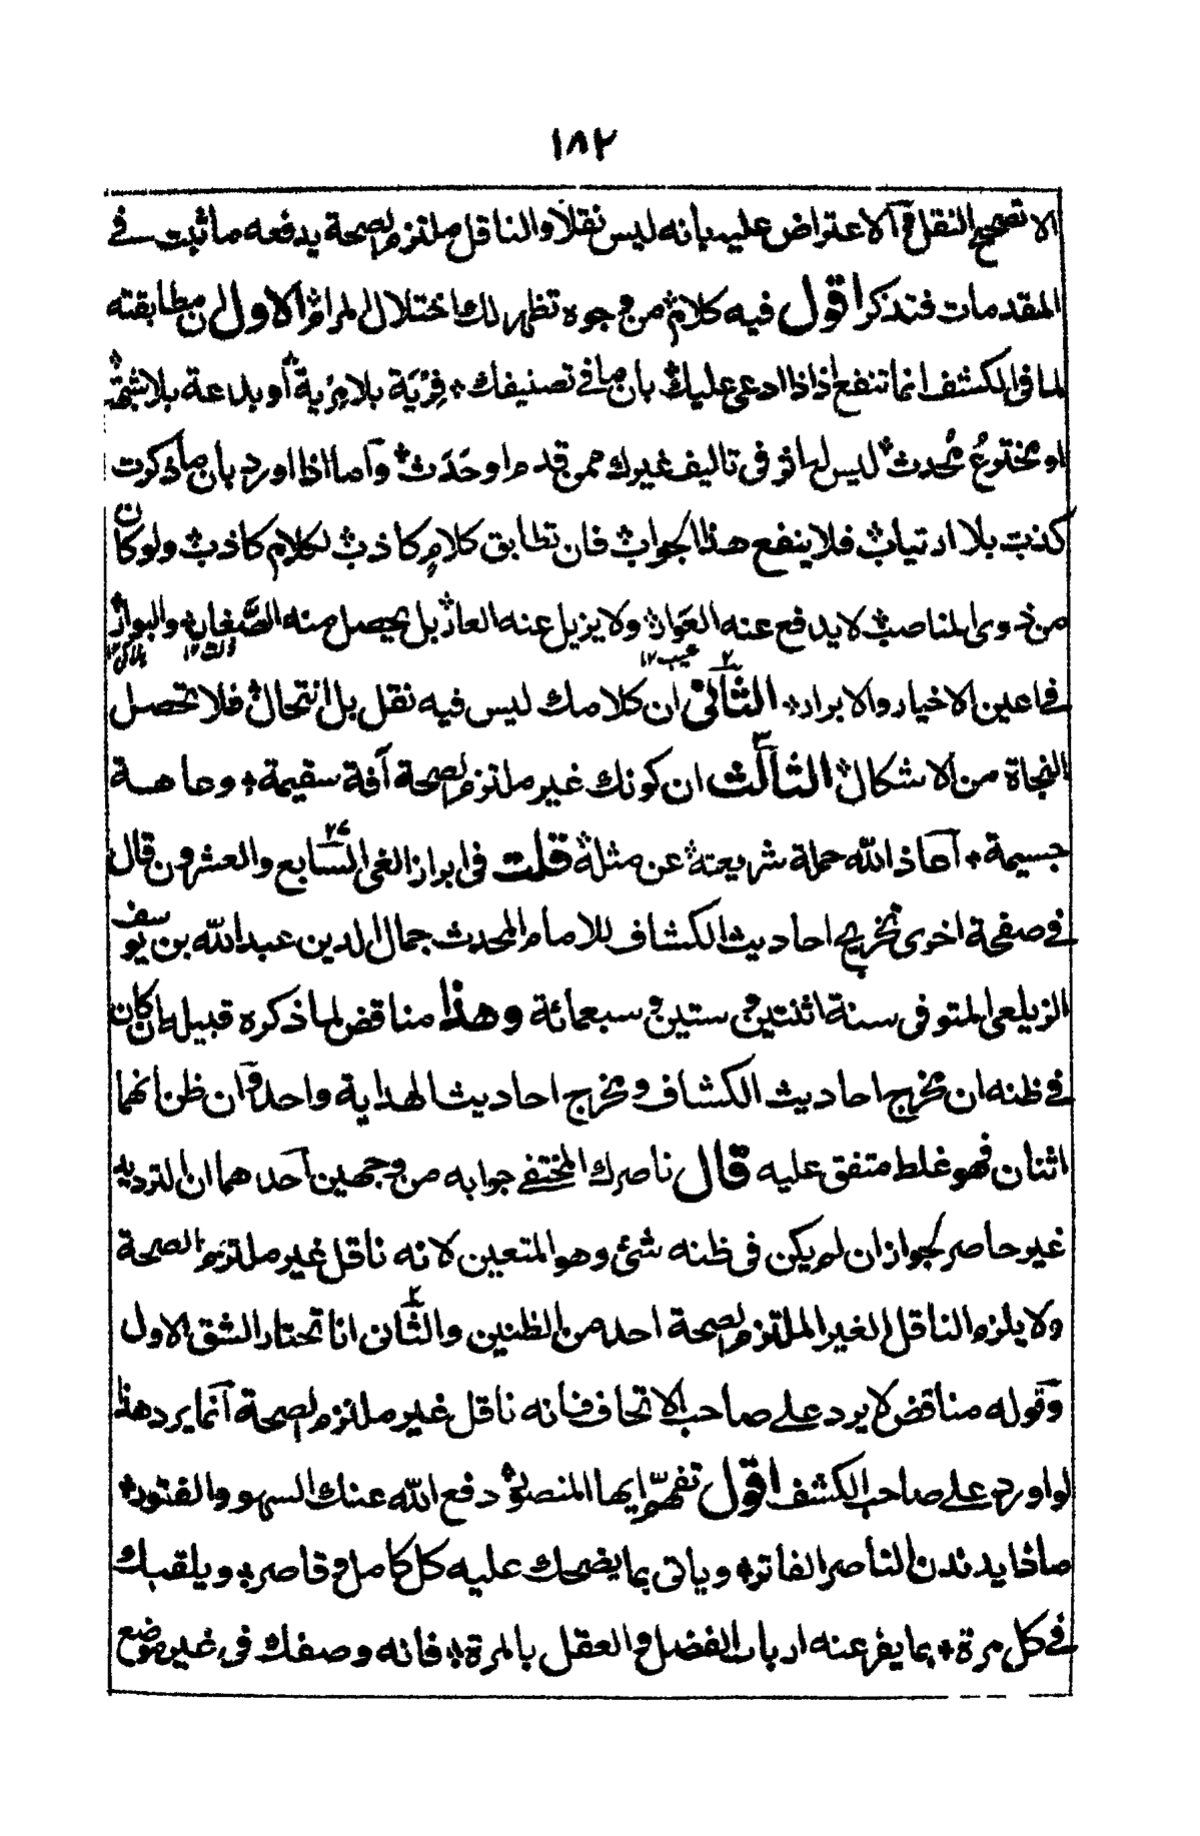 ١٨٢
الا تصحيح النقل والاعتراض عليه بانه ليس نقلا والناقل ملتزم لصحة يدفعه ما ثبت في
المقدمات فتذكر اقول فيه كلام من وجوه تظهر لك اختلال المرام الاول ان مطابقته
لما في الكشف انما تنفع اذا ادعى عليك بان ما في تصنيفك فِرْيَة بلا مِرْية أو بدعة بلا شبهة
او مخترعٌ مُحدث ليس له اثر في تاليف غيرك ممن قدم او حَدَث وأما اذا اورد بان ما ذكرت
كذب بلا ارتياب فلا ينفع هذا الجواب فان تطابق كلامٍ كاذب لكلام كاذب ولو كان
من ذوى المناصب لا يدفع عنه العَوَار ولا يزيل عنه العار بل يحصل منه الصَّغار والبوار
عيب ١٢ ذلت ١٢ هلاكى ١٢
في اعين الاخيار والابرار الثانى ان كلامك ليس فيه نقل بل انتحال فلا تحصل
النجاة من الاشكال الثالث ان كونك غير ملتزم لصحة آفة سقيمة وعاهة
جسيمة أعاذ الله حملة شريعته عن مثله قلت في ابراز الغى السابع والعشرون قال
٢٧
في صفحة اخرى تخريج احاديث الكشاف للامام المحدث جمال الدين عبد الله بن يوسف
الزيلعى المتوفى سنة اثنتين وستين وسبعمائة وهذا مناقض لما ذكره قبيله ان كان
في ظنه ان مخرج احاديث الكشاف ومخرج احاديث الهداية واحد وان ظن انهما
اثنان فهو غلط متفق عليه قال ناصرك المختفى جوابه من وجهين أحدهما ان الترديد
غير حاصر لجواز ان لم يكن في ظنه شئ وهو المتعين لانه ناقل غير ملتزم الصحة
ولا يلزم الناقل الغير الملتزم لصحة احد من الظنين والثانى انا نختار الشق الاول
وقوله مناقض لا يرد على صاحب الاتحاف فانه ناقل غير ملتزم لصحة أنما يرد هذا
لو اورد على صاحب الكشف اقول تفهّم ايها المنصور دفع الله عنك السهو والفتور
ماذا يدندن الناصر الفاتر وياتى بما يضحك عليه كل كامل وقاصر ويلقبك
في كل مرة بما يفر عنه ارباب الفضل والعقل بالمرة فانه وصفك في غير موضع